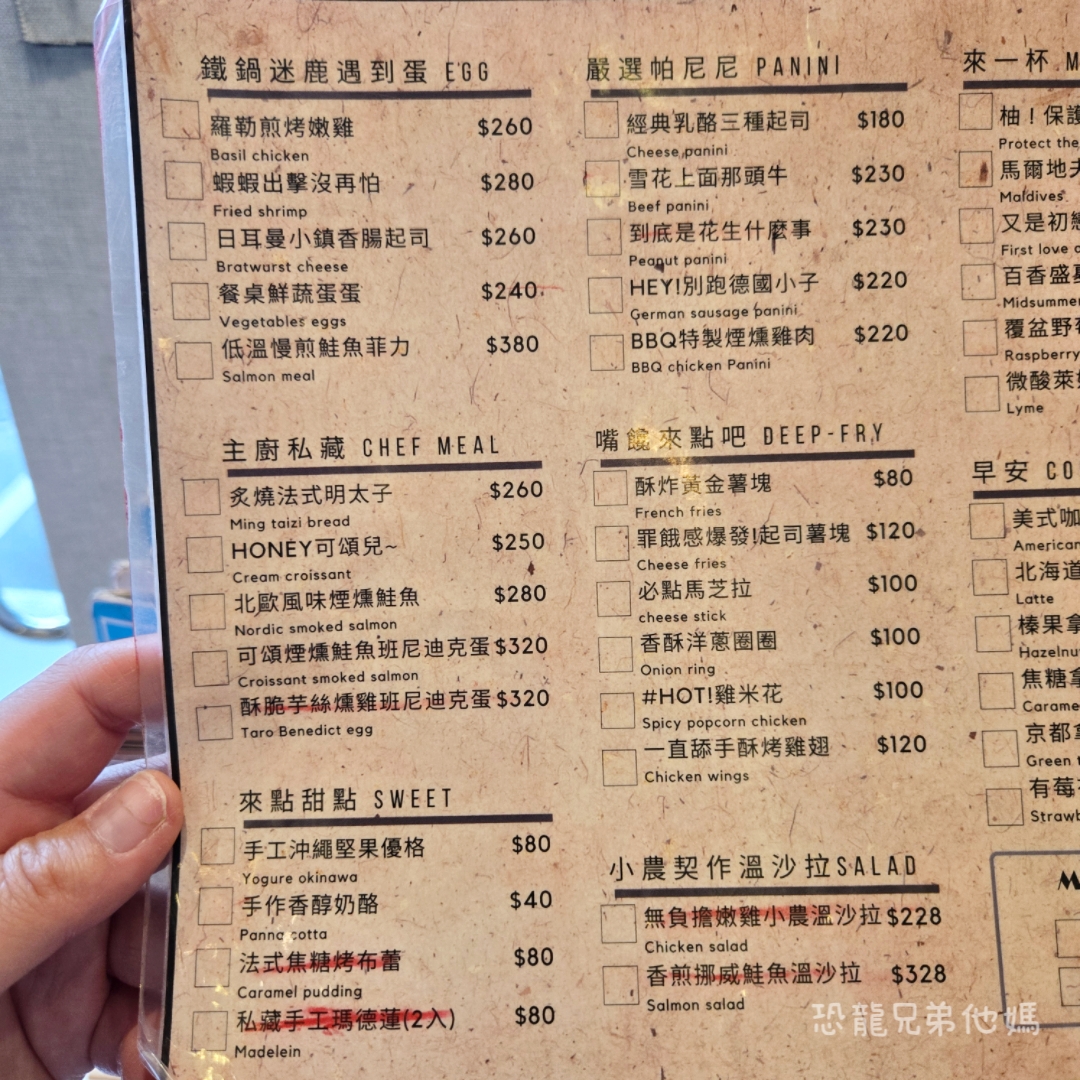 鐵鍋迷鹿遇到蛋 EGG
羅勒煎烤嫩雞 $260
Basil chicken
蝦蝦出擊沒再怕 $280
Fried shrimp
日耳曼小鎮香腸起司 $260
Bratwurst cheese
餐桌鮮蔬蛋蛋 $240
Vegetables eggs
低溫慢煎鮭魚菲力 $380
Salmon meal
主廚私藏 CHEF MEAL
炙燒法式明太子 $260
Ming taizi bread
HONEY可頌兒~ $250
Cream croissant
北歐風味煙燻鮭魚 $280
Nordic smoked salmon
可頌煙燻鮭魚班尼迪克蛋 $320
Croissant smoked salmon
酥脆芋絲燻雞班尼迪克蛋 $320
Taro Benedict egg
來點甜點 SWEET
手工沖繩堅果優格 $80
Yogure okinawa
手作香醇奶酪 $40
Panna cotta
法式焦糖烤布蕾 $80
Caramel pudding
私藏手工瑪德蓮(2入) $80
Madelein
嚴選帕尼尼 PANINI
經典乳酪三種起司 $180
Cheese panini
雪花上面那頭牛 $230
Beef panini
到底是花生什麼事 $230
Peanut panini
HEY!別跑德國小子 $220
German sausage panini
BBQ特製煙燻雞肉 $220
BBQ chicken Panini
嘴饞來點吧 DEEP-FRY
酥炸黃金薯塊 $80
French fries
罪餓感爆發!起司薯塊 $120
Cheese fries
必點馬芝拉 $100
cheese stick
香酥洋蔥圈圈 $100
Onion ring
#HOT!雞米花 $100
Spicy popcorn chicken
一直舔手酥烤雞翅 $120
Chicken wings
小農契作溫沙拉SALAD
無負擔嫩雞小農溫沙拉 $228
Chicken salad
香煎挪威鮭魚溫沙拉 $328
Salmon salad
來一杯 M
柚!保護
Protect the
馬爾地夫
Maldives
又是初戀
First love
百香盛夏
Midsummer
覆盆野莓
Raspberry
微酸萊
Lyme
早安 CO
美式咖
American
北海道
Latte
榛果拿
Hazelnu
焦糖拿
Carame
京都拿
Green
有莓
Strawb
M
恐龍兄弟他媽